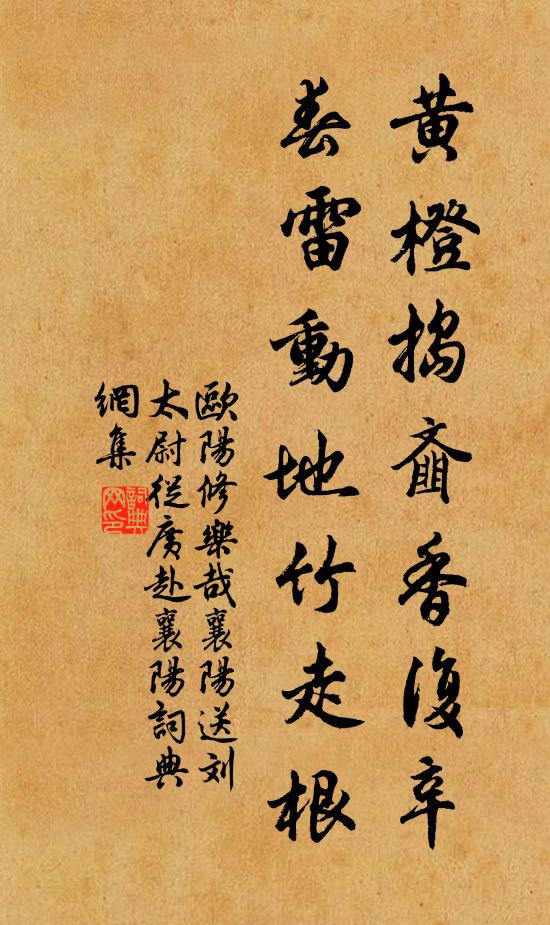 黄橙搗齑香復辛
春雷動地竹走根
歐陽修樂哉襄陽送刘
太尉從廣赴襄陽詞典
網集
詞典網印